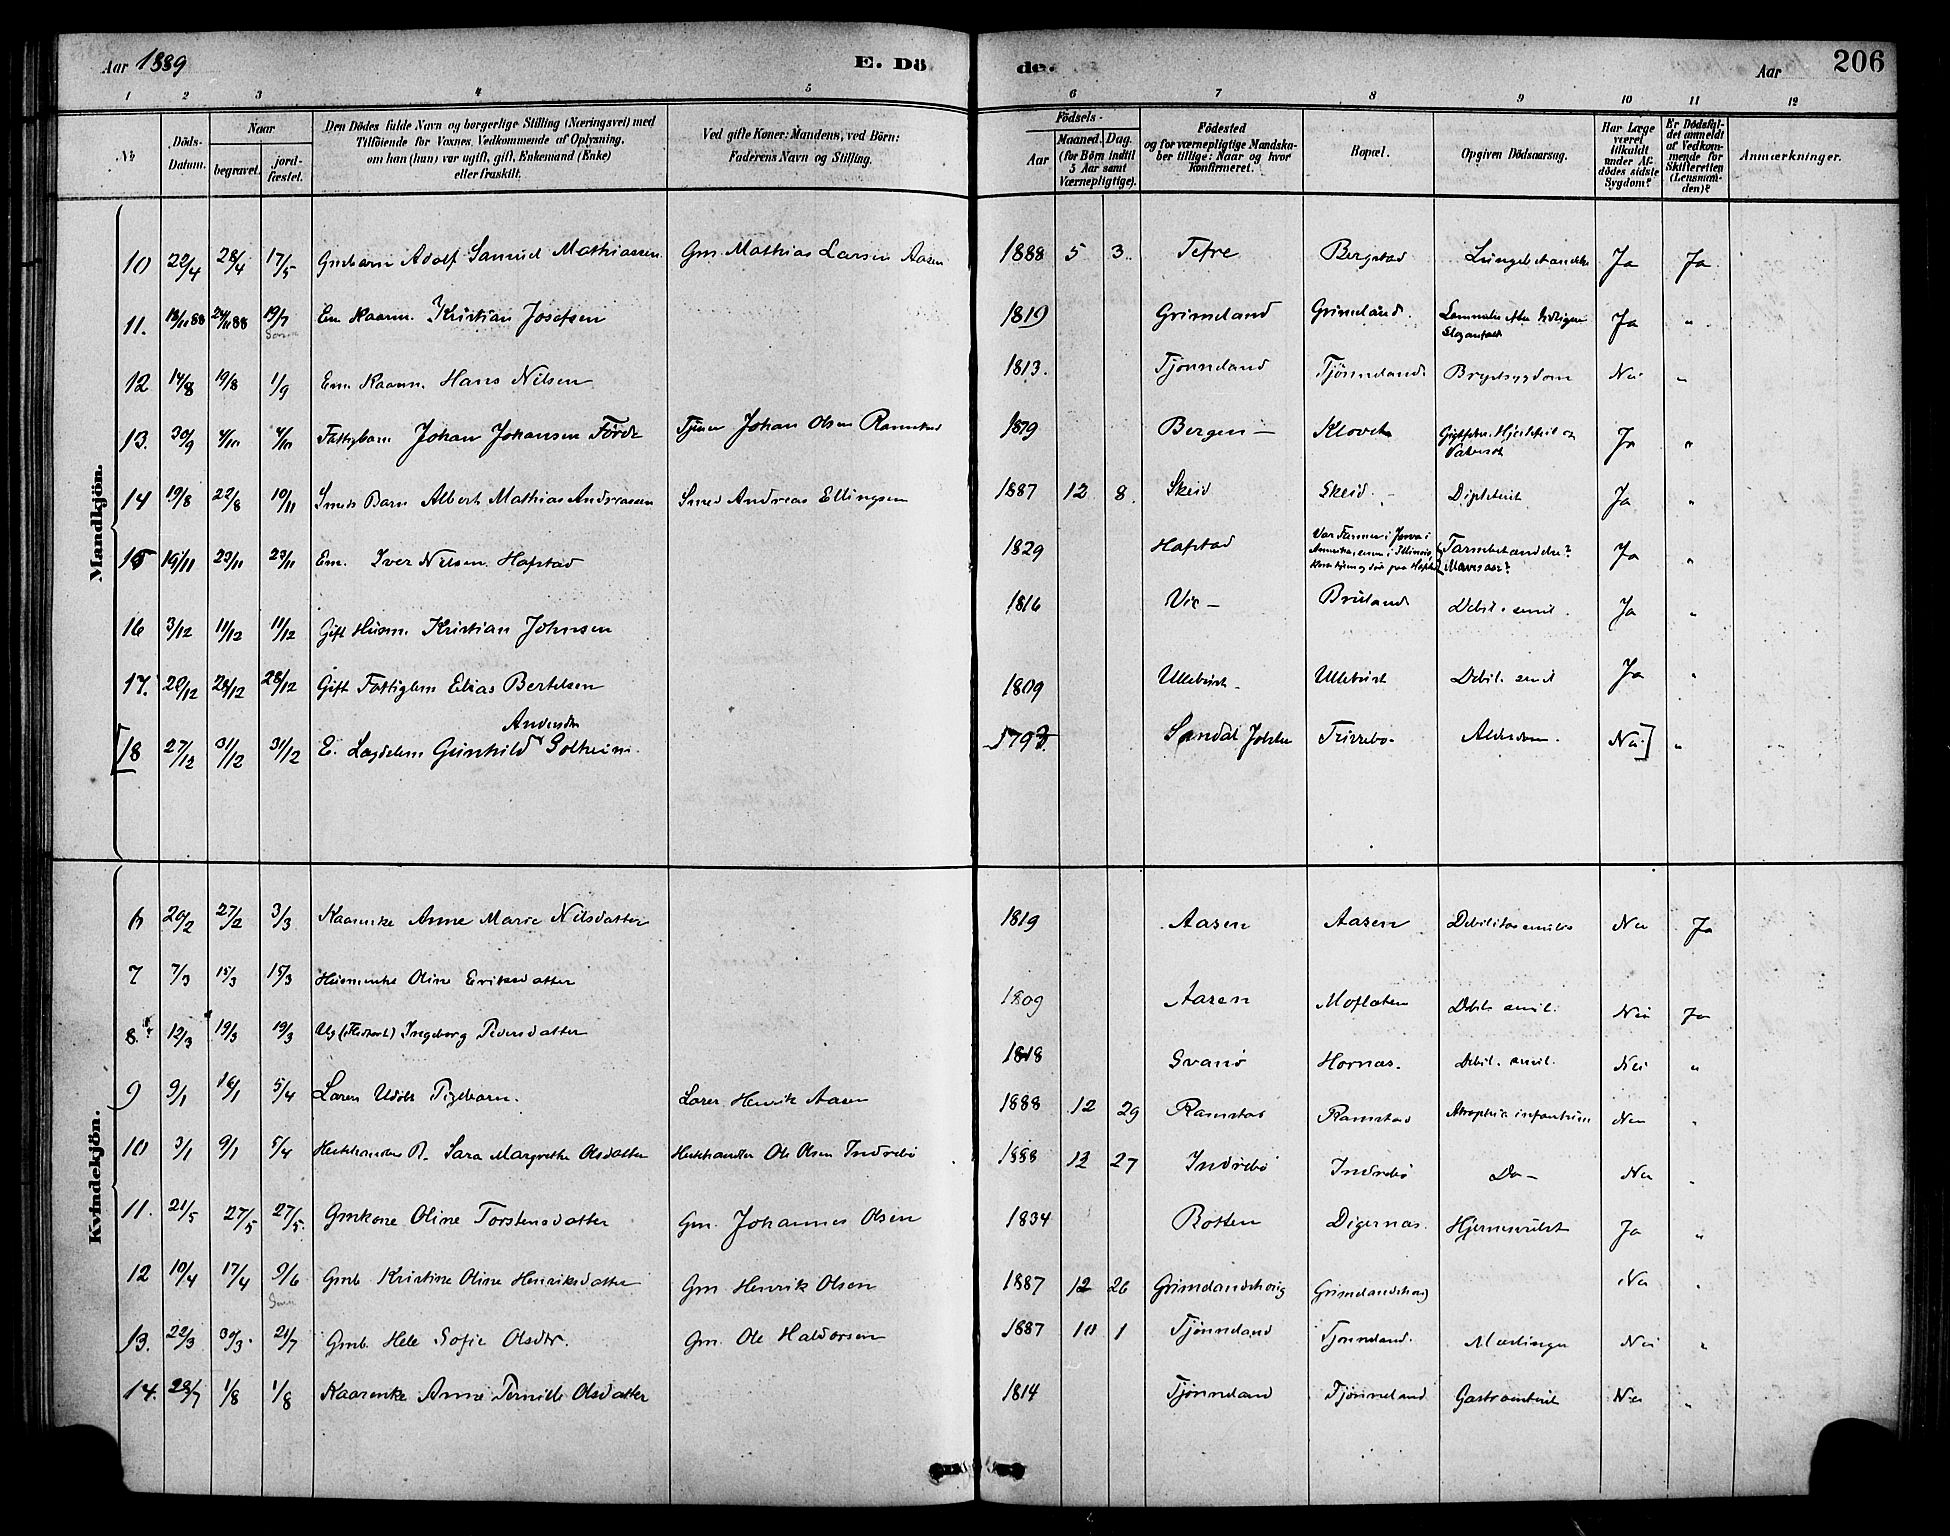 Aar 1889 E. Dö de. Aar 206
1 2 3 4 5 6 7 8 9 10 11 12
No
Döds-Datum.
Naar
begravet.
jord-fæstet.
Den Dödes fulde Navn og borgerlige Stilling (Næringsvei) med
Tilföiende for Voxnes Vedkommende af Oplysning,
om han (hun) var ugift, gift, Enkemand (Enke)
eller fraskilt.
Ved gifte Koner: Mandens, ved Börn:
Faderens Navn og Stilling.
Födsels-
Aar
Maaned. Dag.
(for Börn indtil
5 Aar samt
Værnepligtige).
Födested
og for værnepligtige Mandska-
ber tillige: Naar og hvor
Konfirmeret.
Bopæl.
Opgiven Dödsaarsag.
Har Læge
været
tilkaldt
under Af-
dödes sidste
Sygdom?
Er Dödsfal-
det anmeldt
af Vedkom-
mende for
Skifteretten
(Lensman-
den)?
Anmærkninger.
Mandkjön.
10 22/4 28/4 17/5 Gmbarn Adolf Samuel Mathiassen Gm. Mathias Larsen Aasen 1888 5 3. Tefre Bergstad Ja Ja
11. 18/11 88 24/11 88 19/7 Em Kaarm. Kristian Josefsen 1819 Grimeland Grimeland. Ja "
12 14/8 19/8 1/9 Em. Kaarm. Hans Nilsen 1813. Tjönneland Tjönneland Brystsygdom Nei "
13. 30/9 4/10 4/10 Fattigbarn Johan Johansen Förde Tjener Johan Olsen Ramstad 1879 Bergen — Ja "
14 19/8 22/8 10/11 Smeds Barn Albert Mathias Andreassen Smed Andreas Ellingsen 1887 12 8. Skeid Skeid. Difterit Ja "
15 19/11 23/11 23/11 Em. Iver Nilsen Hafstad 1829 Hafstad Tarmbetændelse? Mavesaar? Ja "
16 3/12 11/12 11/12 Gift Husm. Kristian Johnsen 1816 Vie — Bruland Debil. senil. Ja "
17. 20/12 28/12 28/12 Gift Fattiglem Elias Bertelsen 1809 Ulleburst. Ulleburst Debil. senil Ja "
[18 27/12 31/12 31/12 E. Lægdslem Gunhild Andersdtr Solheim. 1793. Sandal Jölster Alderdom. Nei] "
Kvindekjön.
6 20/2 27/2 3/3 Kaarenke Anne Marie Nilsdatter 1819 Aasen Aasen Debilitas senilis Nei Ja
7 7/3 15/3 15/3 Husmenke Oline Eriksdatter 1809 Aasen Moflaten Debil. senil. Nei Ja
8. 12/3 19/3 19/3 Ingeborg Pedersdatter 1818 Svanö Hornæs. Debil. senil. Nei "
9 9/1 16/1 5/4 Lærer Udöbt Pigebarn. Lærer Henrik Aasen 1888 12 29 Ramstad Ramstad Atrophia infantium Nei "
10 3/1 9/1 5/4 Hestehandlers B. Sara Margrethe Olsdatter Hestehandler Ole Olsen Indrebö 1888 12 27 Indrebö Indrebö Do — Nei "
11. 21/5 27/5 27/5. Gmkone Oline Torstensdatter Gm. Johannes Olsen 1834 Botten Digernæs. Hjernesvulst Ja "
12 10/4 17/4 9/6 Gmb Kristine Oline Henriksdatter Gm Henrik Olsen 1887 12 26 Grimelandshaug Grimelandshaug Nei "
13. 22/3 30/3. 21/7 Gmb. Hele Sofie Olsdtr. Gm. Ole Haldorsen 1887 10 1 Tjönneland Tjönneland. Mæslinger Nei "
14. 28/7 1/8 1/8 Kaarenke Anne Pernille Olsdatter 1814 Tjönneland Tjönneland Gastroenterit Nei "